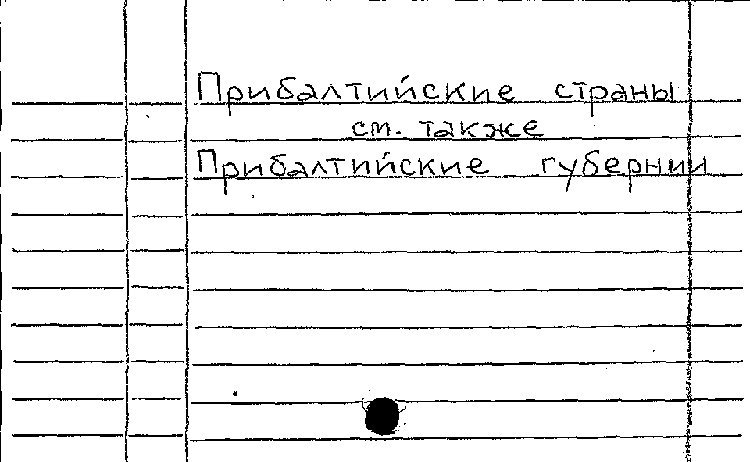 Прибалтийские страны
см. также
Прибалтийские губернии